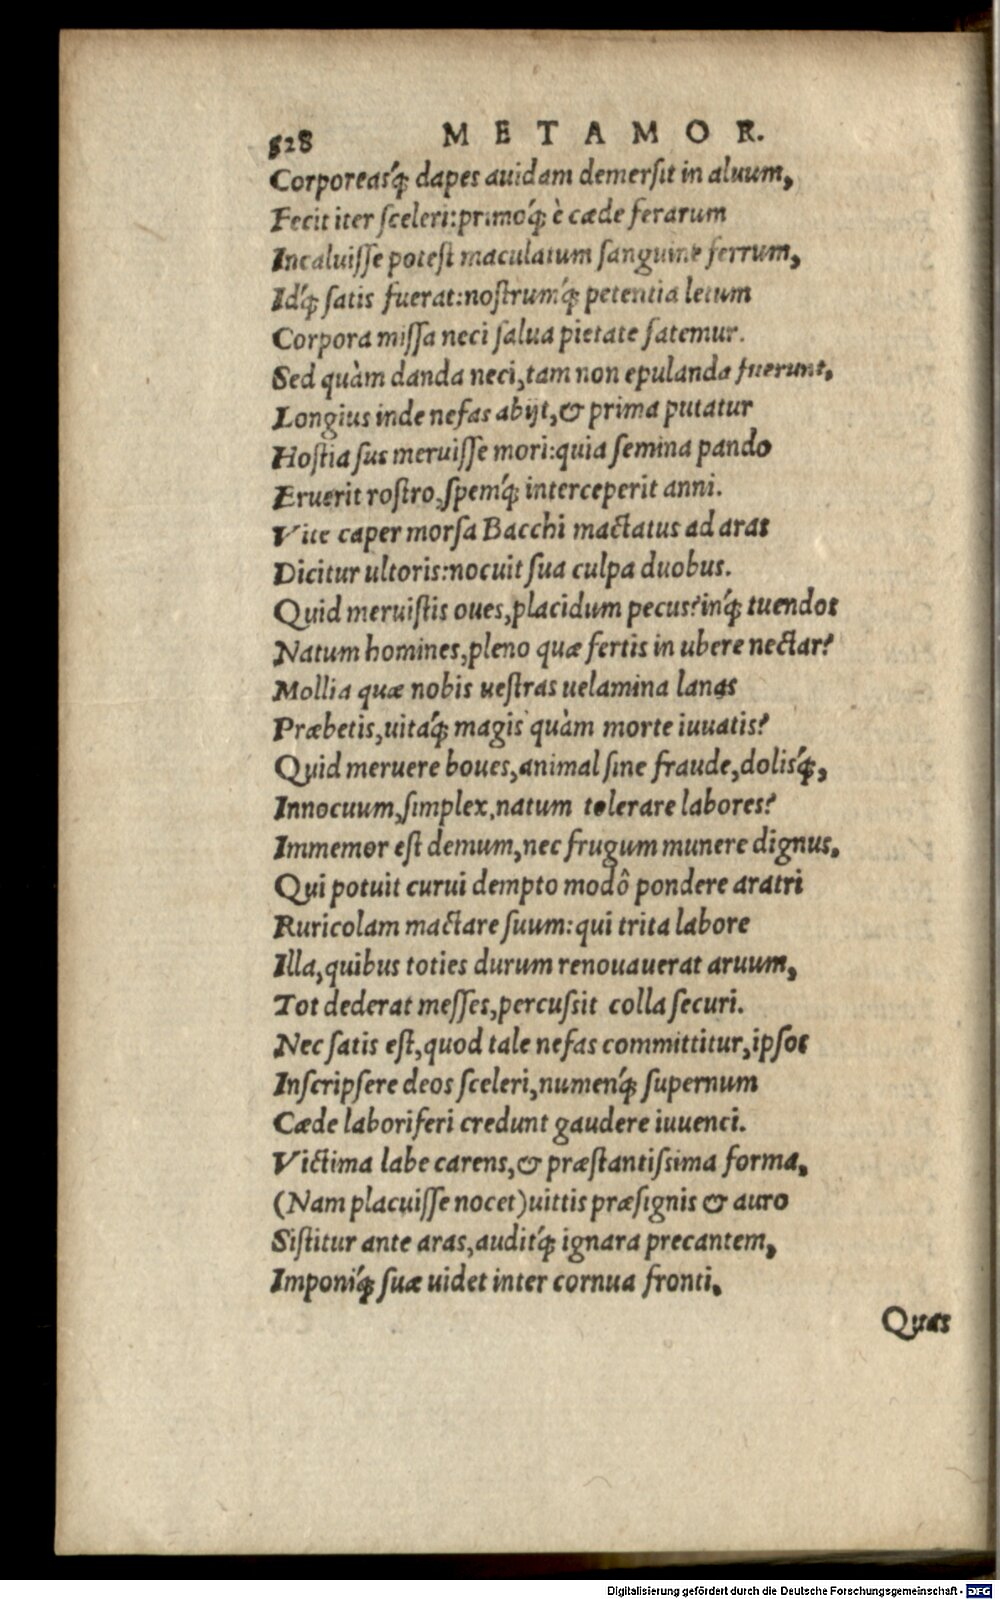 528 METAMOR.
Corporeasq́; dapes auidam demersit in aluum,
Fecit iter sceleri:primoq́; è cæde ferarum
Incaluisse potest maculatum sanguine ferrum,
Idq́; satis fuerat:nostrumq́; petentia letum
Corpora missa neci salua pietate fatemur.
Sed quàm danda neci,tam non epulanda fuerunt.
Longius inde nefas abijt,& prima putatur
Hostia sus meruisse mori:quia semina pando
Eruerit rostro,spemq́; interceperit anni.
Vite caper morsa Bacchi mactatus ad aras
Dicitur ultoris:nocuit sua culpa duobus.
Quid meruistis oues,placidum pecus?inq́; tuendos
Natum homines,pleno quæ fertis in ubere nectar?
Mollia quæ nobis uestras uelamina lanas
Præbetis,uitaq́; magis quàm morte iuuatis?
Quid meruere boues,animal sine fraude,dolisq́;,
Innocuum,simplex,natum tolerare labores?
Immemor est demum,nec frugum munere dignus.
Qui potuit curui dempto modô pondere aratri
Ruricolam mactare suum:qui trita labore
Illa,quibus toties durum renouauerat aruum,
Tot dederat messes,percussit colla securi.
Nec satis est,quod tale nefas committitur,ipsos
Inscripsere deos sceleri,numenq́; supernum
Cæde laboriferi credunt gaudere iuuenci.
Victima labe carens,& præstantissima forma,
(Nam placuisse nocet)uittis præsignis & auro
Sistitur ante aras,auditq́; ignara precantem,
Imponiq́; suæ uidet inter cornua fronti,
Quas
Digitalisierung gefördert durch die Deutsche Forschungsgemeinschaft - DFG